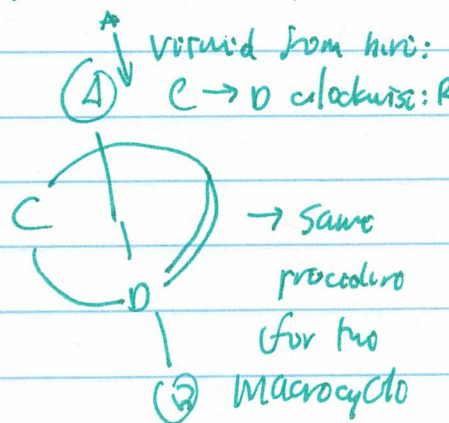 *
viewed from here:
A
C → D clockwise: R
C
→ same
D
procedure
for two
B
macrocycle